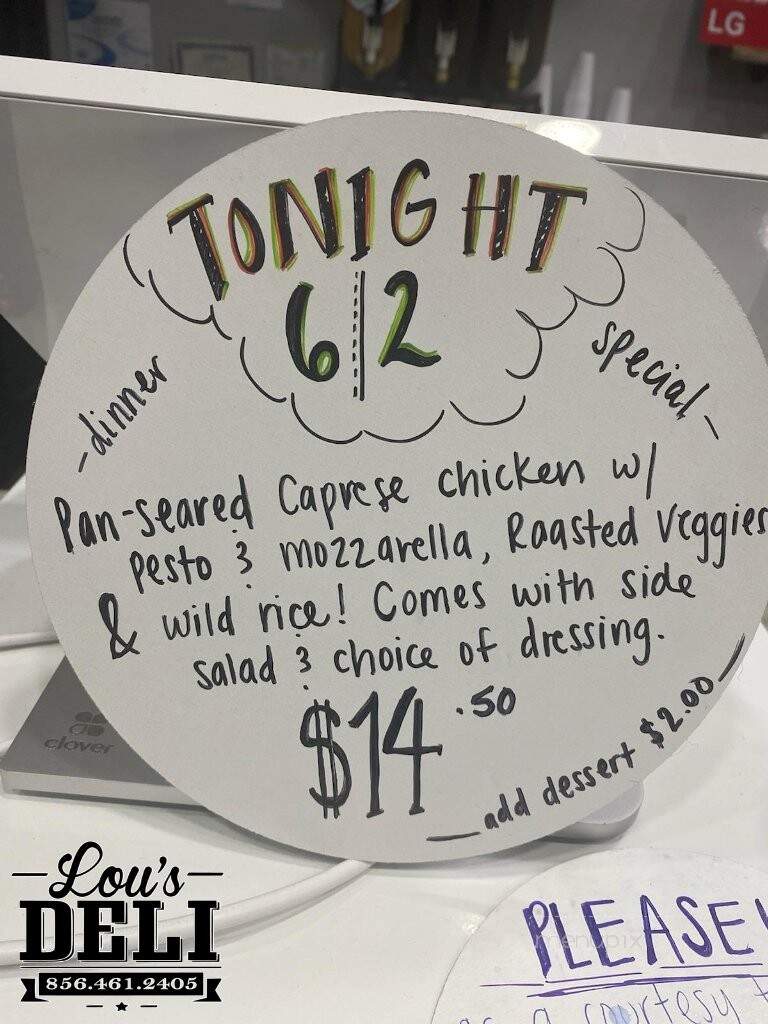 LG
TONIGHT
6|2
-dinner
special-
Pan-seared Caprese chicken w/
pesto & mozzarella, Roasted Veggies
& wild rice! Comes with side
salad & choice of dressing.
$14.50
add dessert $2.00
clover
Lou's
DELI
856.461.2405
PLEASE!
menupix
as a courtesy t